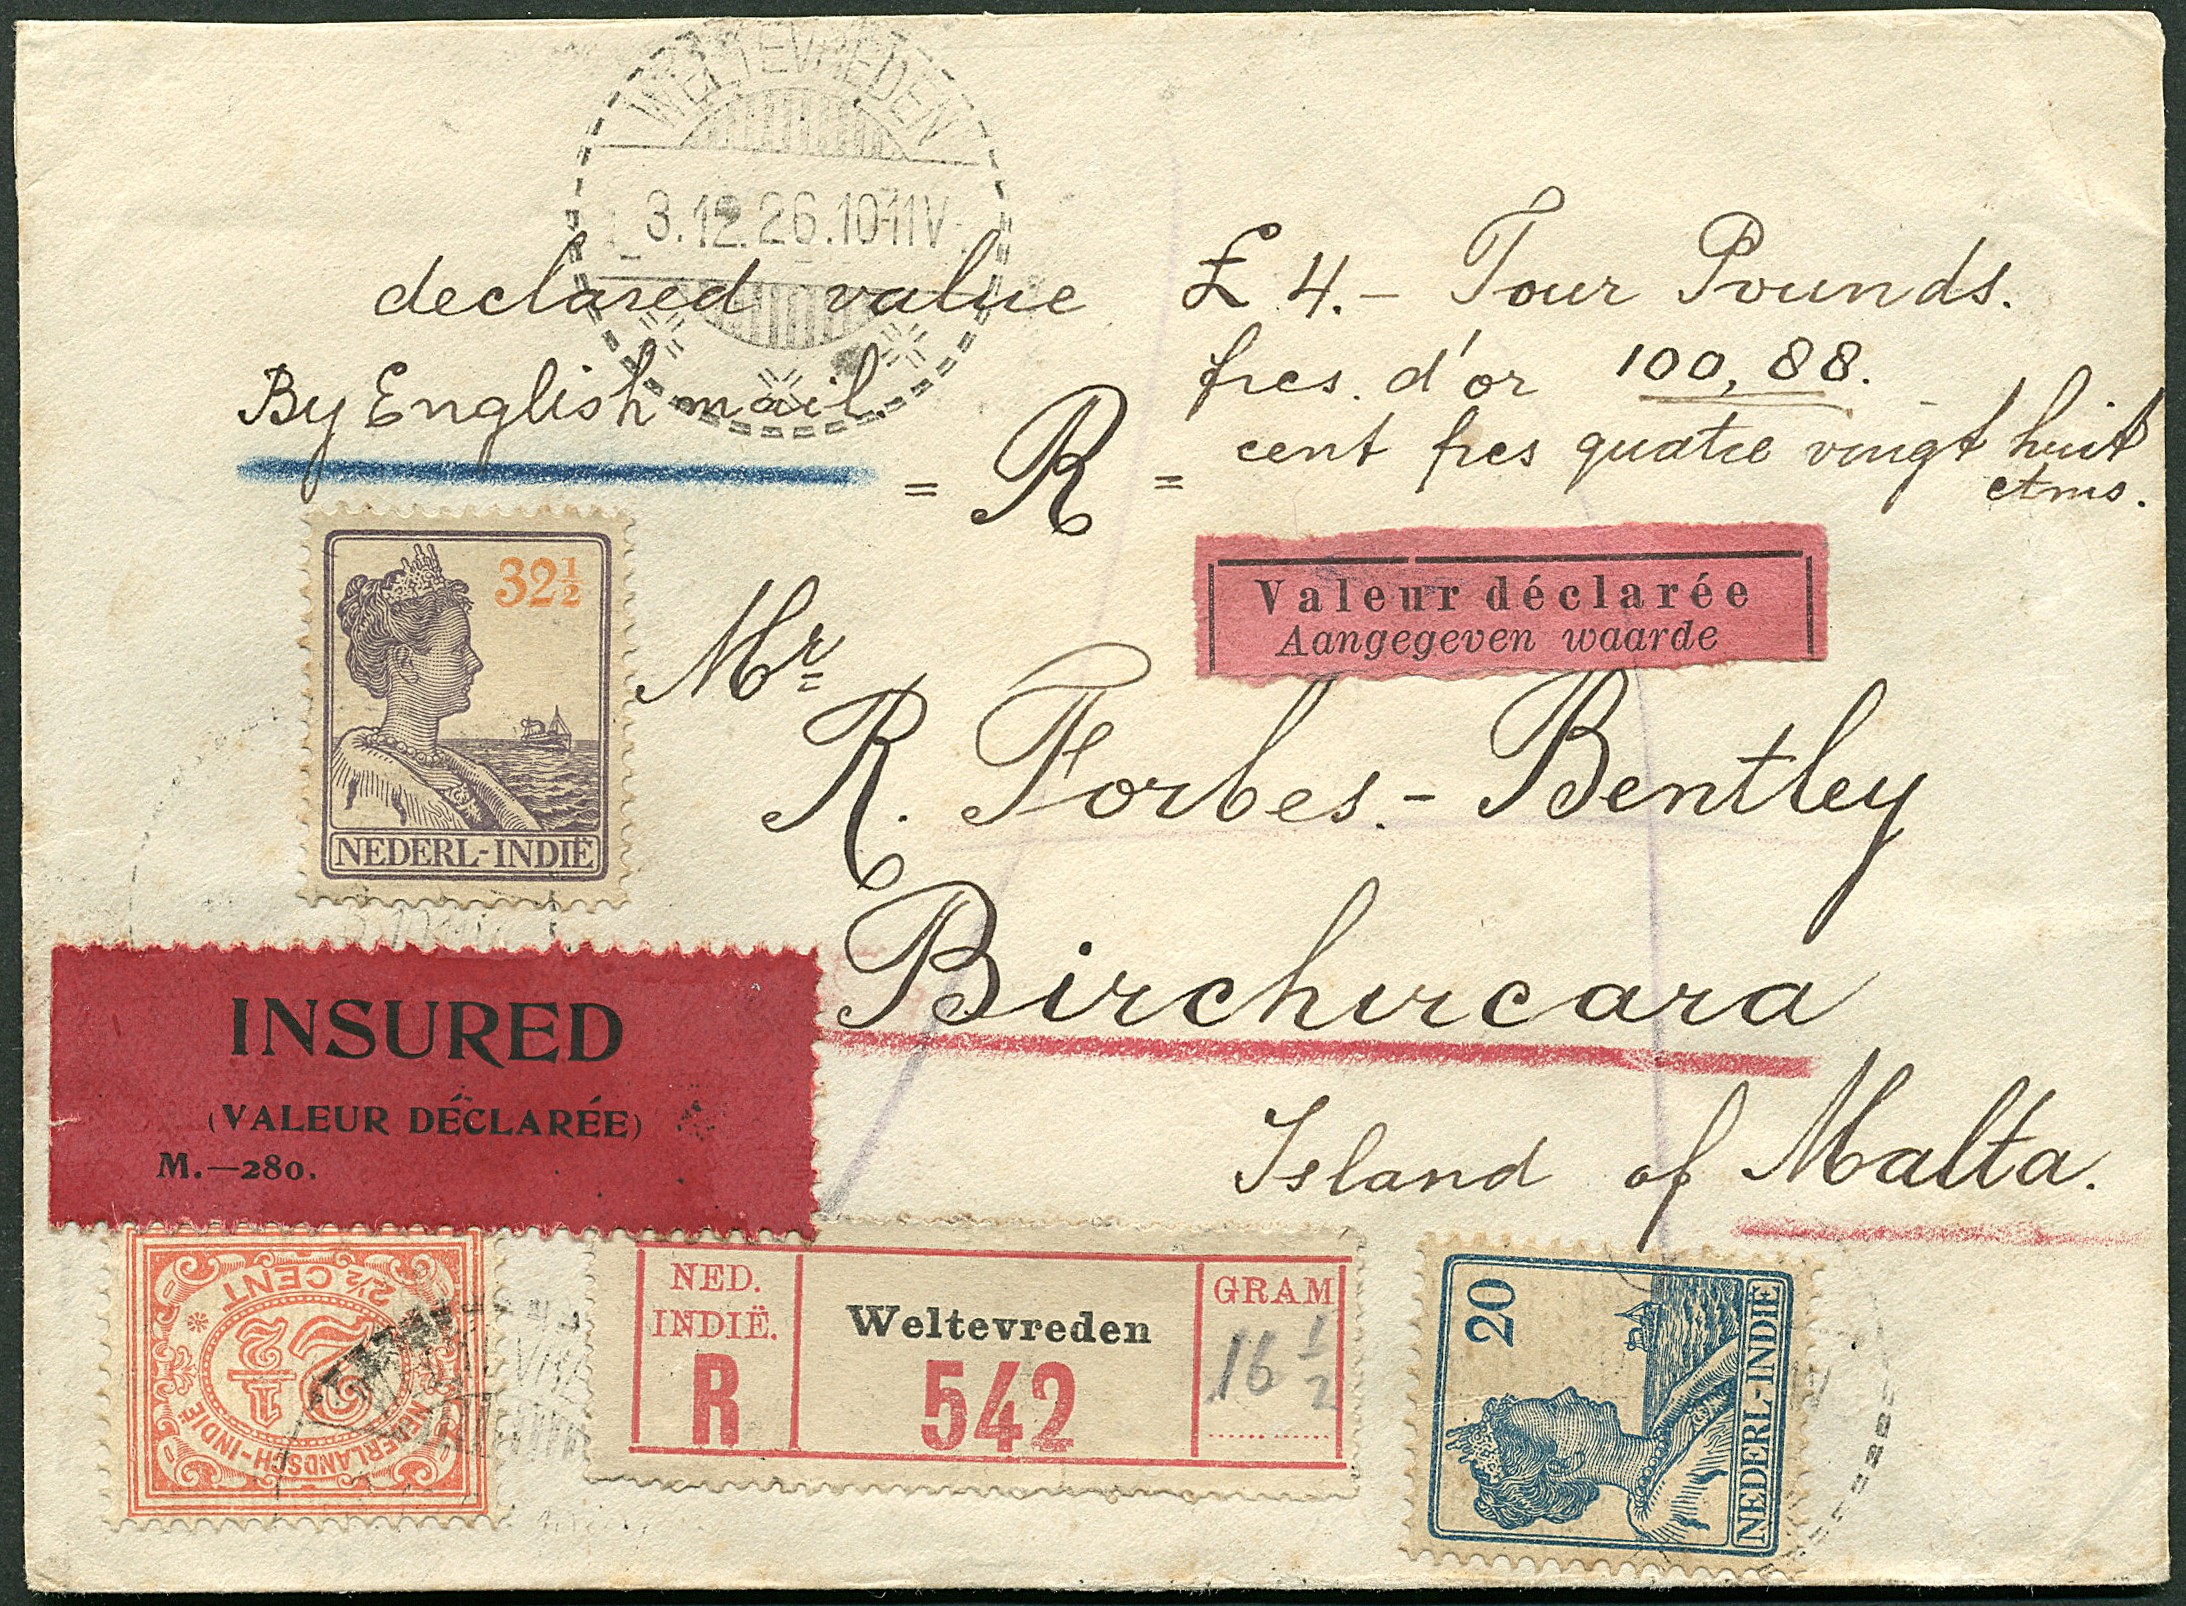 WELTEVREDEN
3.12.26.10-11V
declared value £ 4.- Four Pounds.
By English mail.
frcs. d'or 100,88.
cent frcs quatre vingt huit
ctms.
= R =
32½
NEDERL-INDIË
Valeur déclarée
Aangegeven waarde
Mr
R. Forbes-Bentley
Birchircara
Island of Malta.
INSURED
(VALEUR DÉCLARÉE)
M.—280.
2½ CENT
2½
NEDERLANDSCH-INDIË
NED.
INDIË.
R
Weltevreden
542
GRAM
16 1/2
20
NEDERL-INDIË